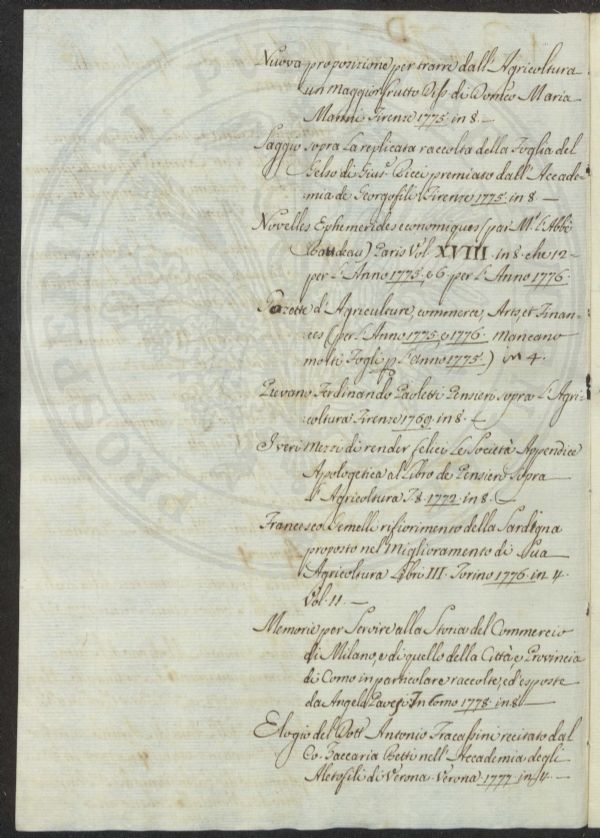 Nuova proposizione per trarre dall'Agricoltura
un maggior frutto Diss. di Domco Maria
Manni Firenze 1775. in 8. —
Saggio sopra la replicata raccolta della Foglia del
Gelso di Gius. Ricci premiato dall'Accade-
mia de Georgofili Firenze 1775. in 8 —
Novelles Ephemerides economiques (par Mr. l'Abbé
Baudeau) Paris Vol. XVIII. in 8. che 12
per l'Anno 1775, e 6 per l'Anno 1776
Gazette d'Agriculture, commerce, Arts, et Finan-
ces (per l'Anno 1775, e 1776. mancano
molti Fogli p l'anno 1775.) in 4.
Pievano Ferdinando Paoletti Pensieri sopra l'Agri-
coltura Firenze 1769. in 8. —
I veri Mezzi di render felici le Società Appendice
Apologetica al Libro de Pensieri sopra
l'Agricoltura 1772. in 8. —
Francesco Gemelli rifiorimento della Sardegna
proposto nel Miglioramento di Sua
Agricoltura Libri III. Torino 1776. in 4.
Vol. 11. —
Memorie per Servire alla Storia del Commercio
di Milano, e di quello della Città, e Provincia
di Como in particolare raccolte, ed esposte
da Angelo Pavesi In Como 1778. in 8 —
Elogio del Dott. Antonio Fracassini recitato dal
Co. Zaccaria Betti nell'Accademia degli
Aletofili di Verona. Verona 1777. in 4. —
PROSPERITATI